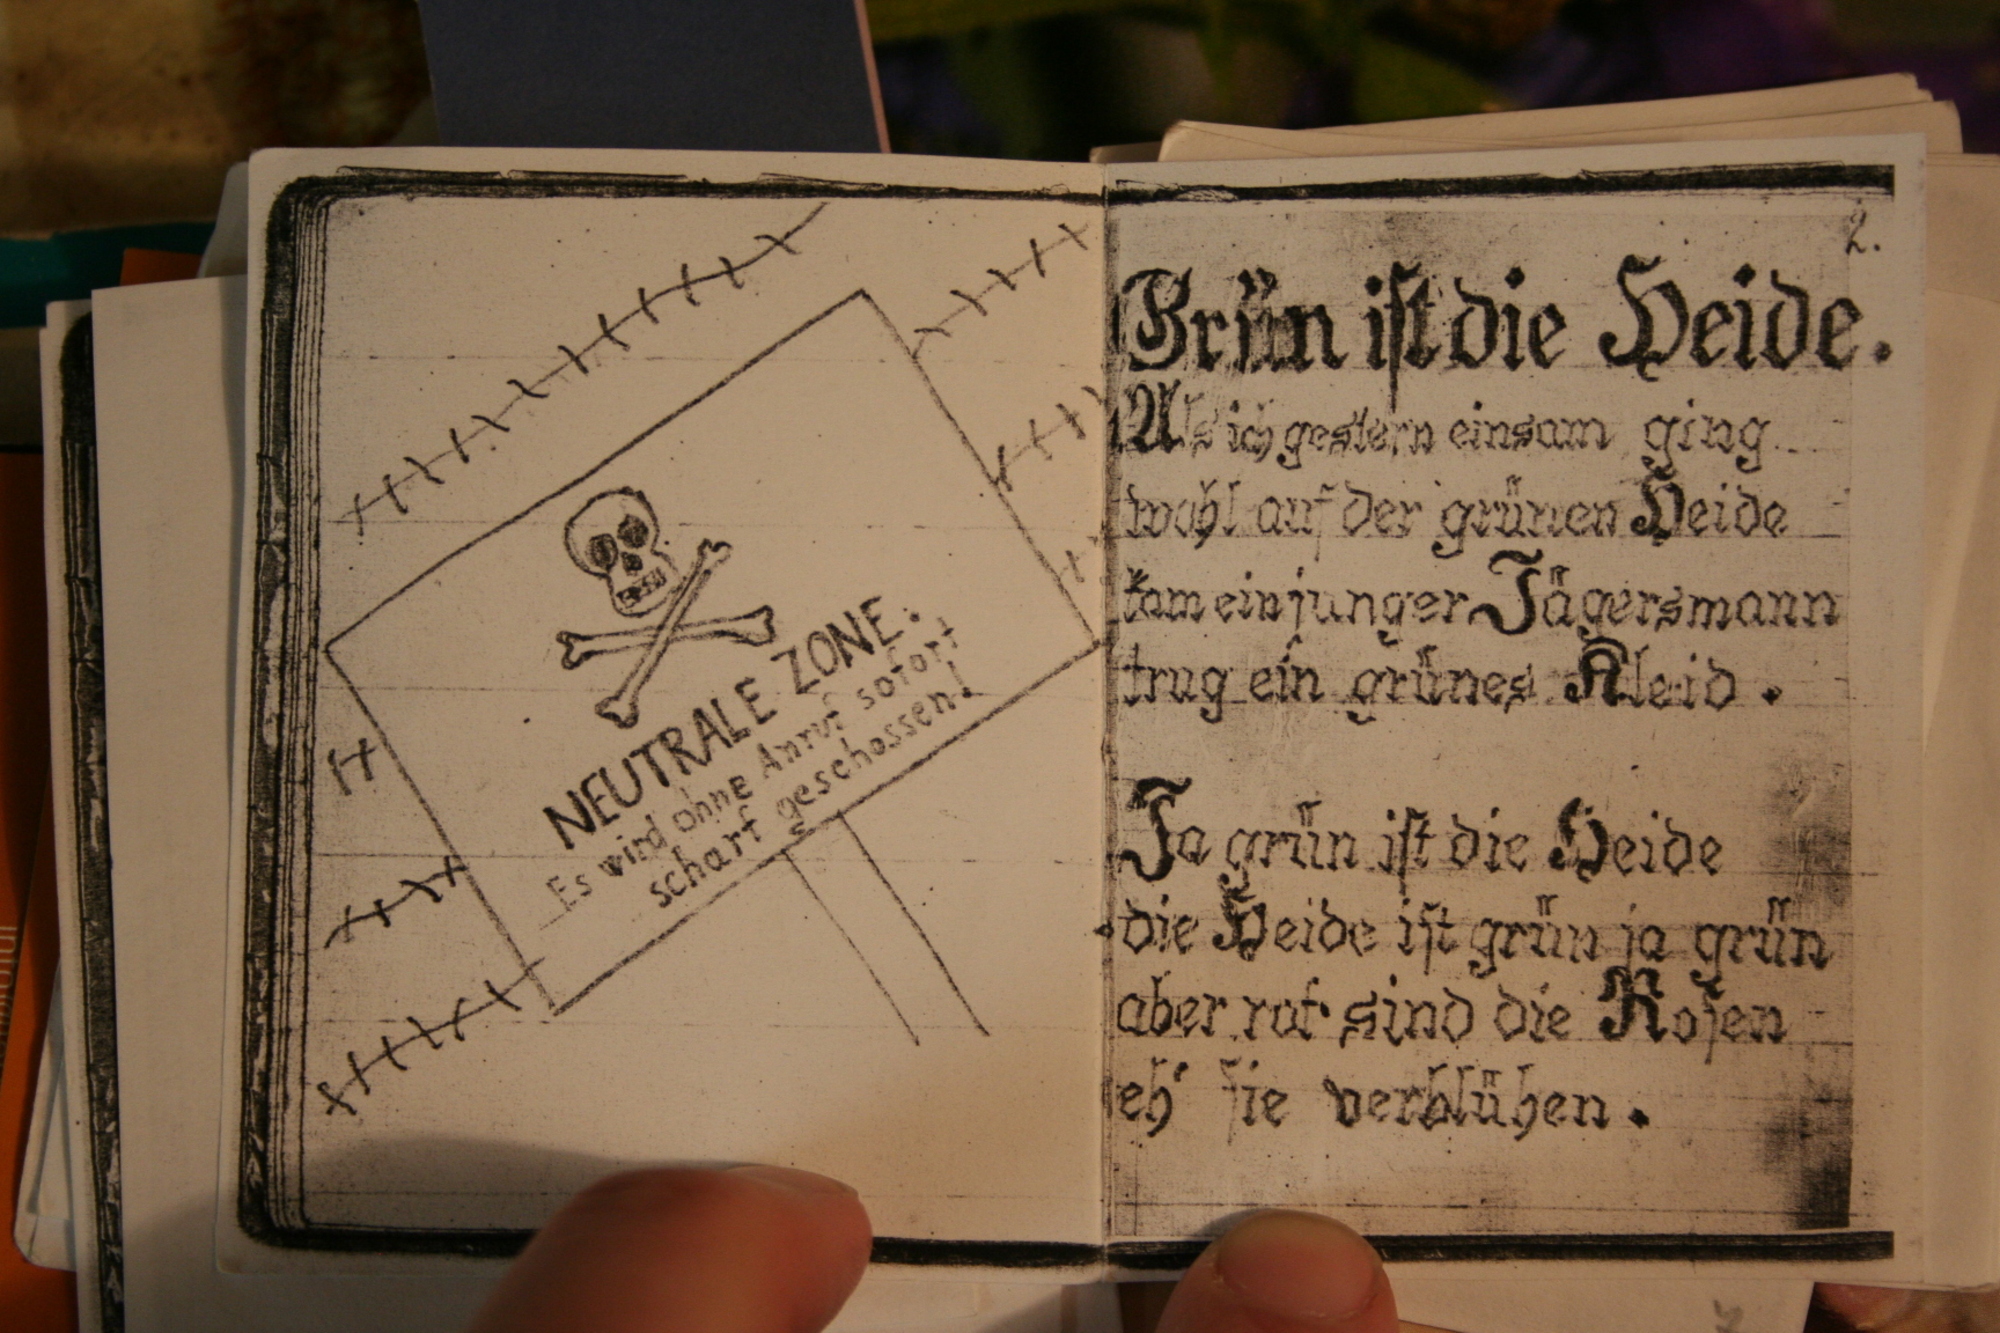 NEUTRALE ZONE.
Es wird ohne Anruf sofort
scharf geschossen!
2.
Grün ist die Heide.
Als ich gestern einsam ging
wohl auf der grünen Heide
kam ein junger Jägersmann
trug ein grünes Kleid.
Ja grün ist die Heide
die Heide ist grün ja grün
aber rot sind die Rosen
eh' sie verblühen.